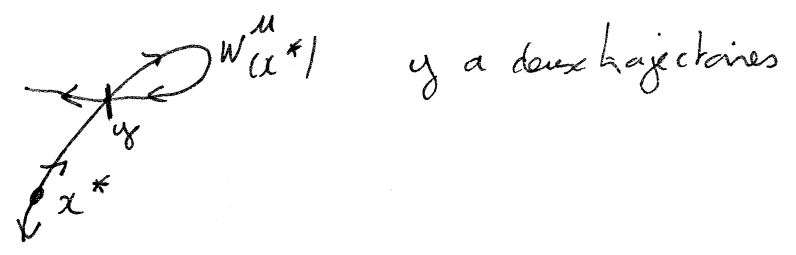 W^u(x*) y a deux trajectoires
y
x*